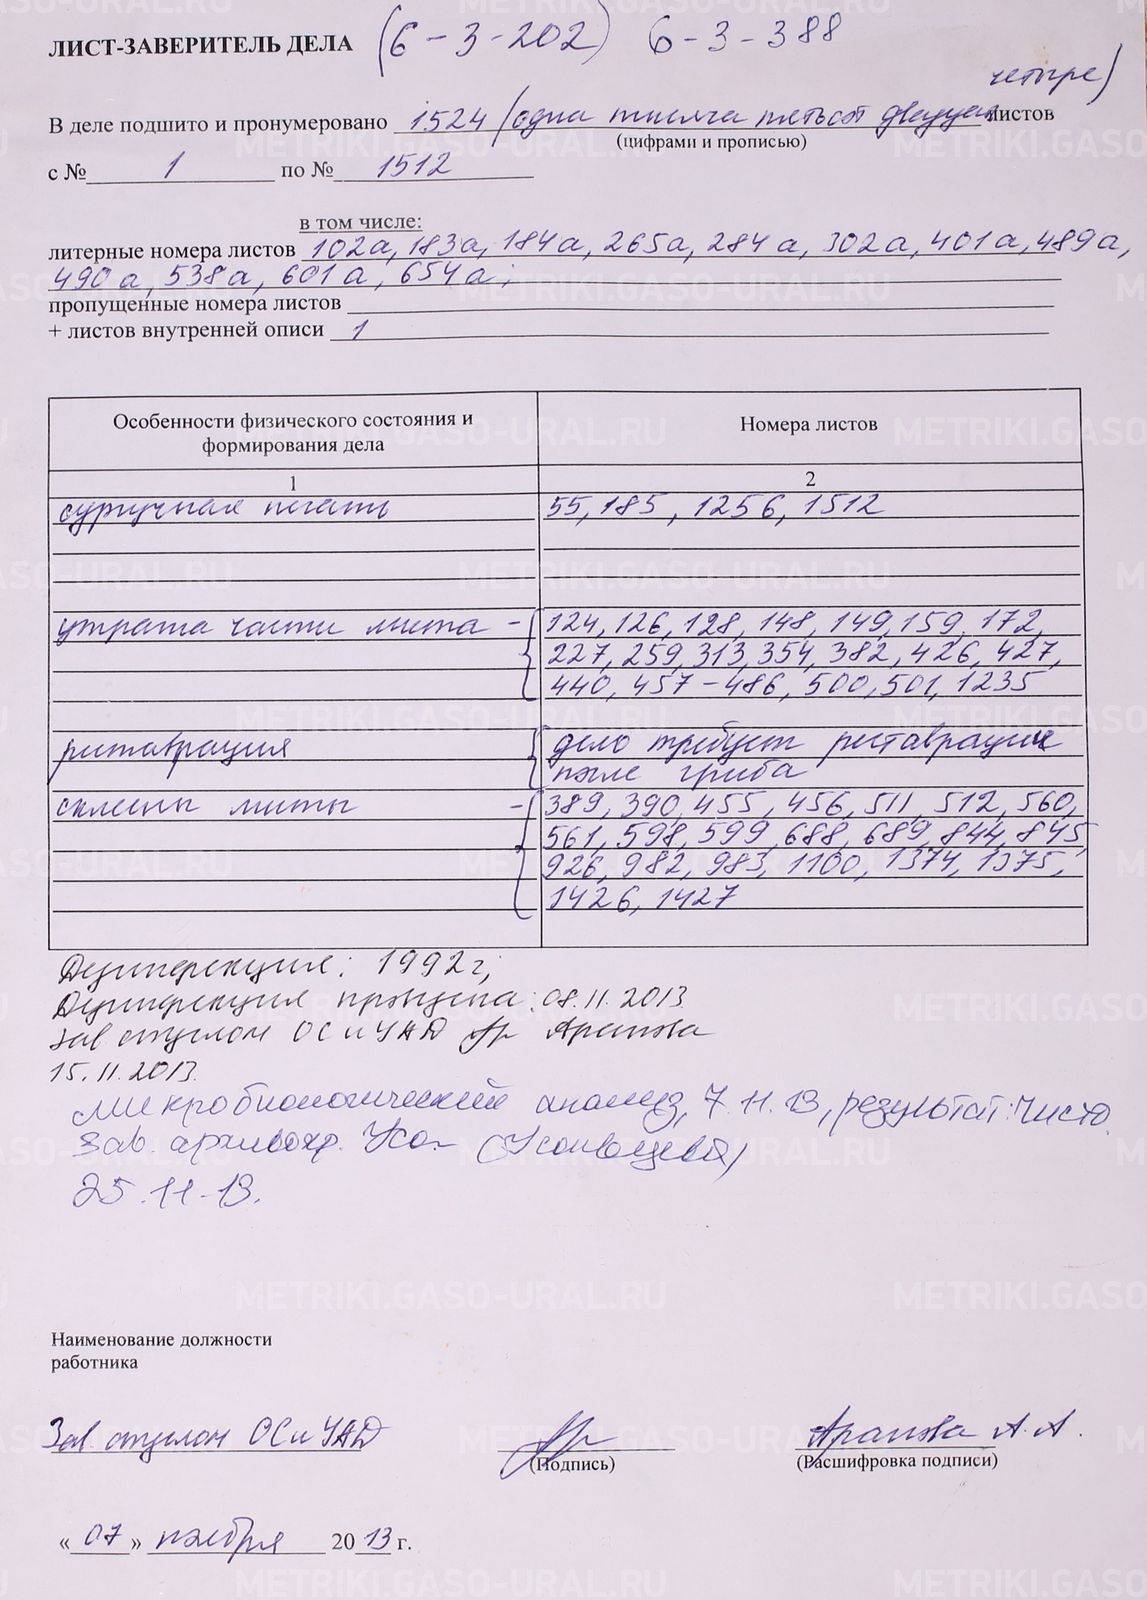 ЛИСТ-ЗАВЕРИТЕЛЬ ДЕЛА (6-3-202) 6-3-388
четыре)
В деле подшито и пронумеровано 1524 (одна тысяча пятьсот двадцать листов
(цифрами и прописью)
с № 1 по № 1512
в том числе:
литерные номера листов 102а, 183а, 184а, 265а, 284а, 302а, 401а, 489а,
490а, 538а, 601а, 654а;
пропущенные номера листов
+ листов внутренней описи 1
Особенности физического состояния и формирования дела Номера листов
1 2
сургучная печать 55, 185, 1256, 1512
утрата части листа - 124, 126, 128, 148, 149, 159, 172,
227, 259, 313, 354, 382, 426, 427,
440, 457-486, 500, 501, 1235
реставрация дело требует реставрации
после гриба
склеены листы - 389, 390, 455, 456, 511, 512, 560,
561, 598, 599, 688, 689, 844, 845,
926, 982, 983, 1100, 1374, 1375,
1426, 1427
Дезинфекция: 1992 г;
Дезинфекция проведена: 08.11.2013
Зав отделом ОСиУАД Арапова
15.11.2013
Микробиологический анализ 7.11.13, результат: чисто.
Зав. архивохр.
25.11.13.
Наименование должности
работника
Зав. отделом ОСиУАД Арапова А. А.
(Подпись) (Расшифровка подписи)
« 07 » ноября 2013 г.
METRIKI.GASO-URAL.RU